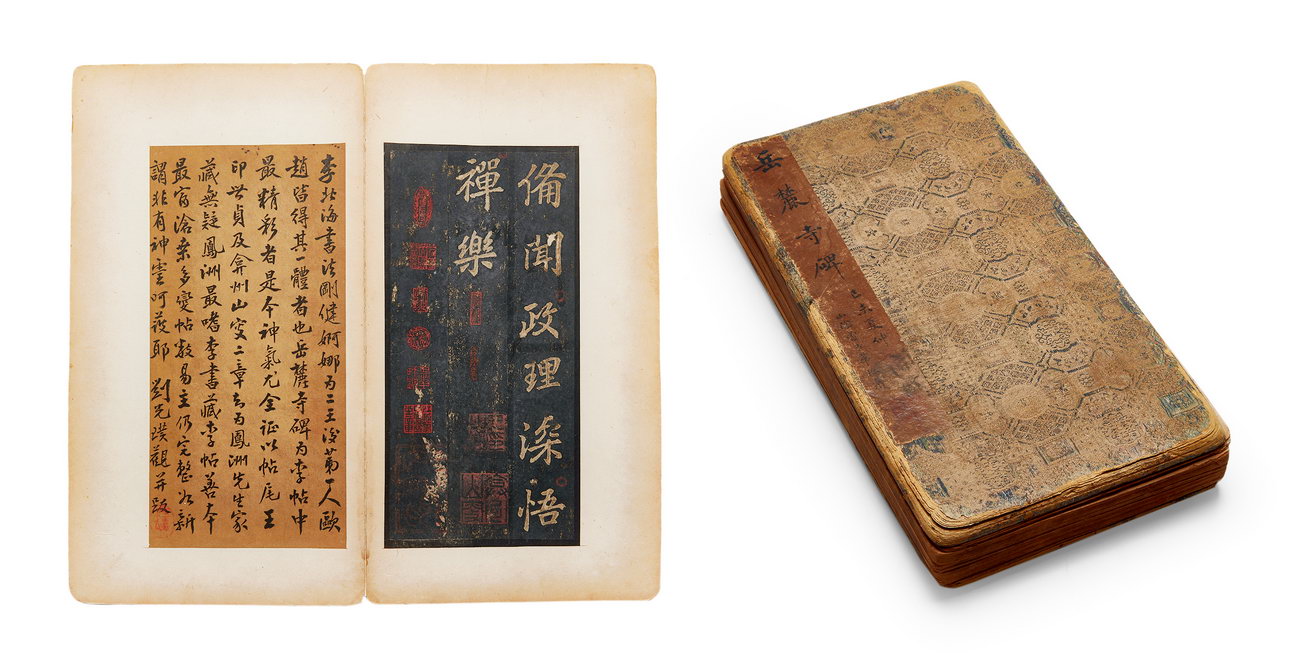 備聞政理深悟
禪樂
李北海書法剛健婀娜為二王後第一人歐
趙皆得其一體者也岳麓寺碑為李帖中
最精彩者是本神氣尤全証以帖尾王
印世貞及弇州山叟二章知為鳳洲先生家
藏無疑鳳洲最嗜李書藏李帖善本
最富滄桑多變帖數易主仍完整如新
謂非有神靈呵護耶 劉 觀并跋
岳麓寺碑
己未夏